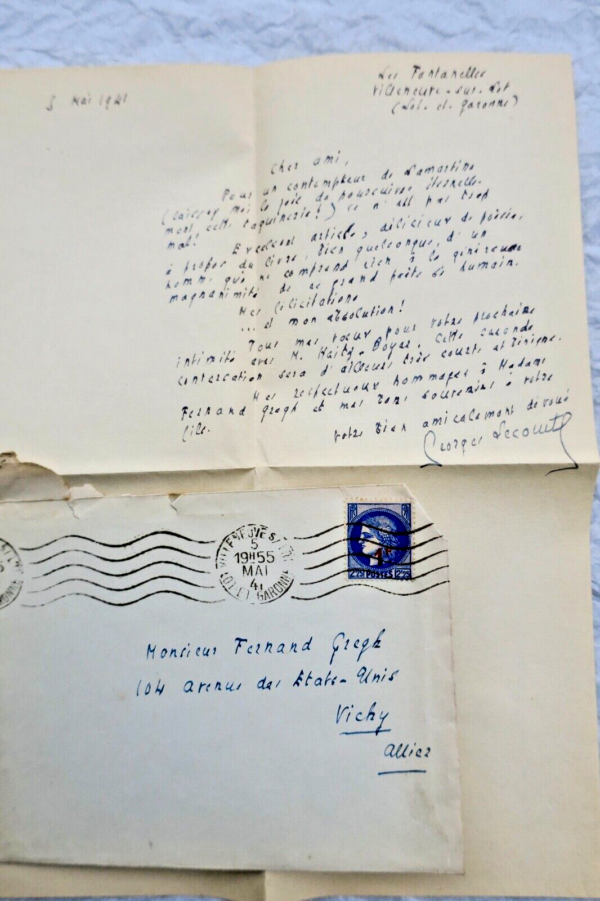 5 Mai 1941
Les Fontanelles
Villeneuve-sur-Lot
(Lot-et-Garonne)
Cher ami,
Pour un contempteur de Lamartine
(laissez moi la joie de poursuivre l'éternelle
mort, cette taquinerie!) ce n'est pas trop
mal.
Excellent article, délicieux de poésie,
à propos du livre, bien quelconque, d'un
homme qui ne comprend rien à la généreuse
magnanimité de ce grand poète si humain.
Mes félicitations
... et mon absolution!
Tous mes vœux pour votre prochaine
intimité avec M. . Cette seconde
sera d'ailleurs très courte et bénigne.
Mes respectueux hommages à Madame
Fernand Gregh et mes bons souvenirs à votre
fils.
Votre bien amicalement dévoué
Georges Lecomte
VILLENEUVE S/ LOT
5
19H55
MAI
41
LOT-ET-GARONNE
1F
2F25 POSTES 2F25
Monsieur Fernand Gregh
104 avenue des États-Unis
Vichy
Allier